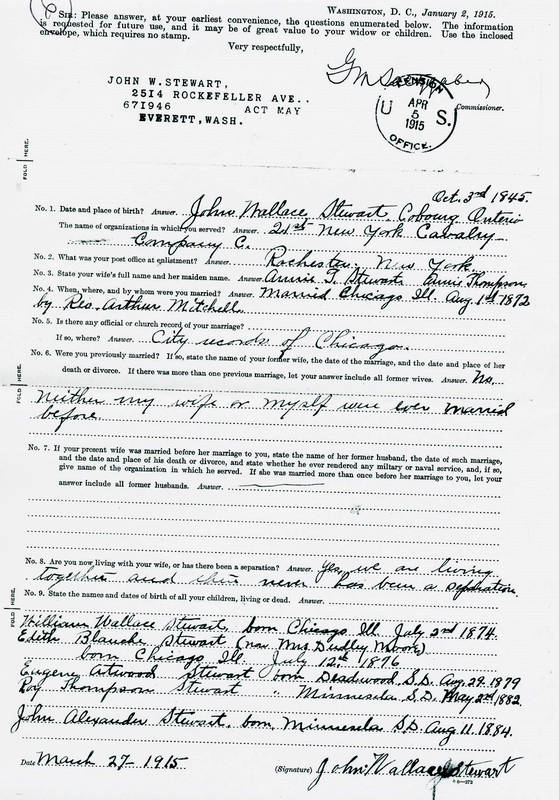 WASHINGTON, D. C., January 2, 1915.
SIR: Please answer, at your earliest convenience, the questions enumerated below. The information
is requested for future use, and it may be of great value to your widow or children. Use the inclosed
envelope, which requires no stamp.
Very respectfully,
JOHN W. STEWART,
2514 ROCKEFELLER AVE..
671946 ACT MAY
EVERETT, WASH.
Commissioner.
PENSION
U APR S.
5
1915
OFFICE.
FOLD HERE.
Oct. 3rd 1845.
No. 1. Date and place of birth? Answer. John Wallace Stewart. Cobourg Ontario
The name of organizations in which you served? Answer. 21st New York Cavalry
Company C.
No. 2. What was your post office at enlistment? Answer. Rochester New York
No. 3. State your wife's full name and her maiden name. Answer. Annie T. Stewart Annie Thompson
No. 4. When, where, and by whom were you married? Answer. Married Chicago Ill. Aug. 1st 1872
by Rev. Arthur Mitchell.
No. 5. Is there any official or church record of your marriage?
If so, where? Answer. City records of Chicago.
No. 6. Were you previously married? If so, state the name of your former wife, the date of the marriage, and the date and place of her
death or divorce. If there was more than one previous marriage, let your answer include all former wives. Answer. No,
FOLD HERE.
Neither my wife or myself were ever married
before
No. 7. If your present wife was married before her marriage to you, state the name of her former husband, the date of such marriage,
and the date and place of his death or divorce, and state whether he ever rendered any military or naval service, and, if so,
give name of the organization in which he served. If she was married more than once before her marriage to you, let your
answer include all former husbands. Answer.
No. 8. Are you now living with your wife, or has there been a separation? Answer. Yes, we are living
together and their never has been a separation
No. 9. State the names and dates of birth of all your children, living or dead. Answer.
FOLD HERE.
William Wallace Stewart, born Chicago Ill. July 2nd 1874.
Edith Blanche Stewart (now Mrs Dudley Moore)
born Chicago Ill July 12th 1876
Eugene Atwood Stewart born Deadwood S.D. Aug. 29. 1879
Roy Thompson Stewart " Minnesela S.D. May 2nd 1882.
John Alexander Stewart, born Minnesela S.D. Aug 11. 1884.
Date March 27-1915 (Signature) John Wallace Stewart
6-373